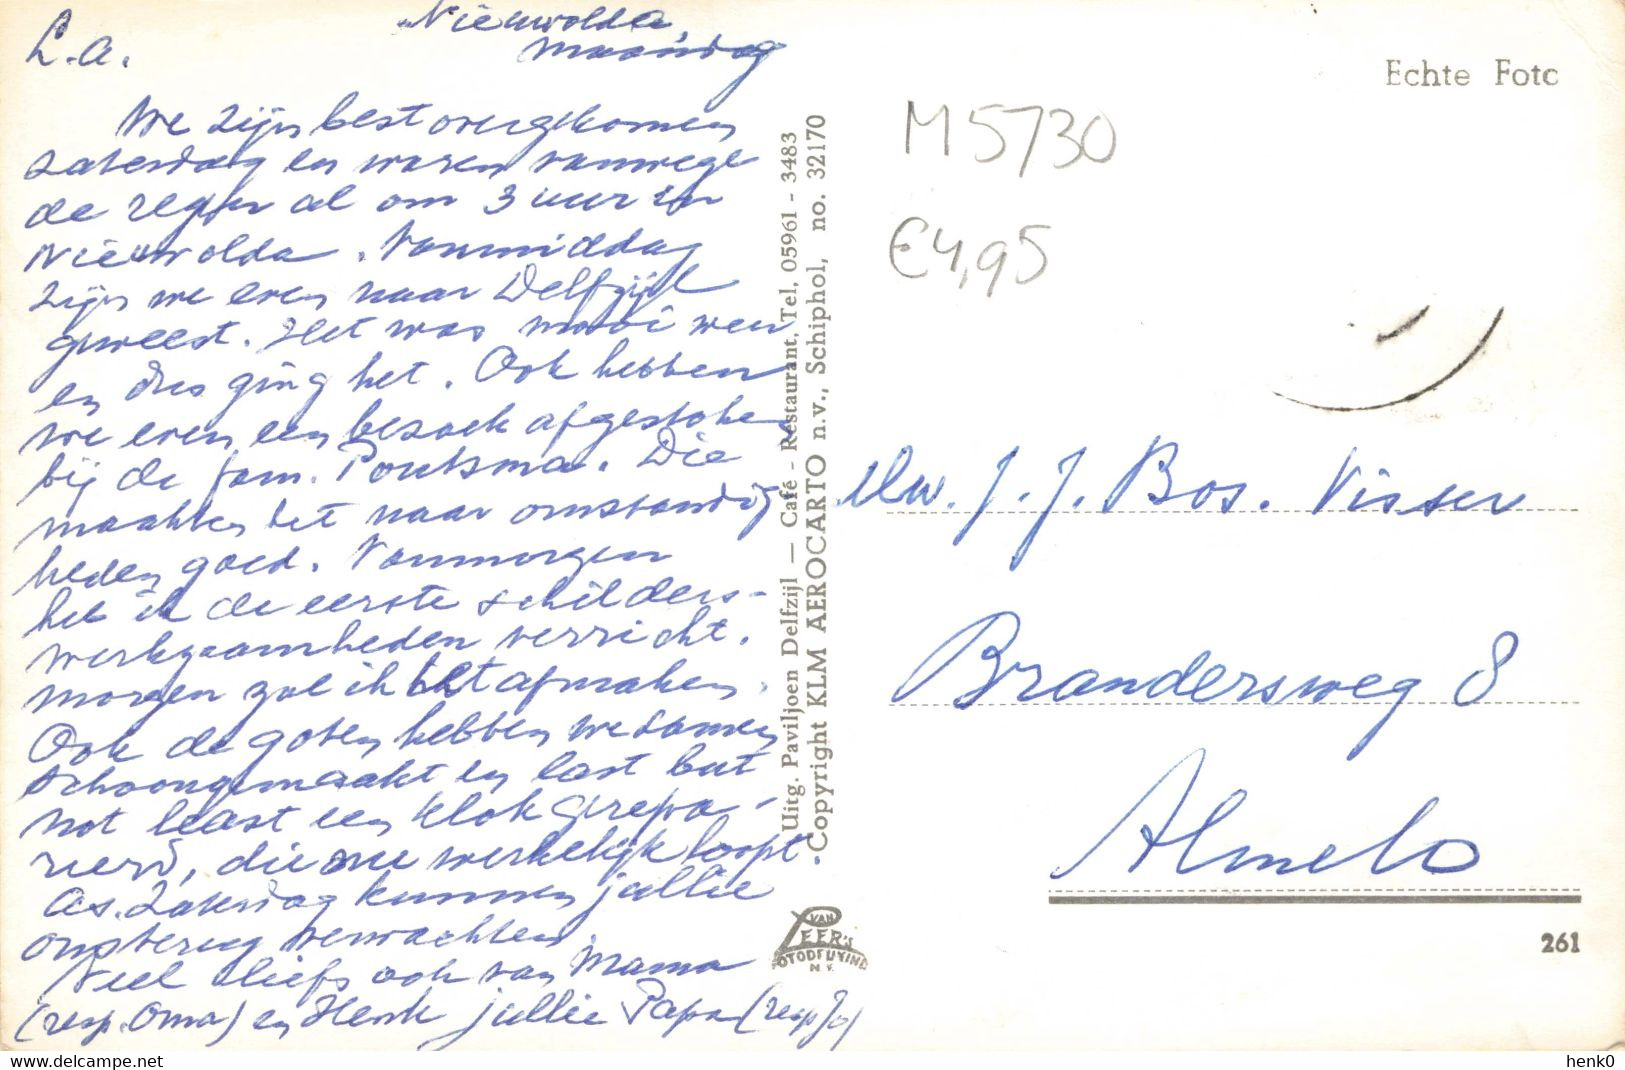 Nieuwolda,
maandag
L.A.
We zijn best overgekomen
zaterdag en waren vanwege
de regen al om 3 uur in
Nieuwolda. Vanmiddag
zijn we even naar Delfzijl
geweest. Het was mooi weer
en dus ging het. Ook hebben
we even een bezoek afgestoken
bij de fam. Poutsma. Die
maakten het naar omstandig
heden goed. Vanmorgen
heb ik de eerste schilders-
werkzaamheden verricht.
Morgen zal ik het afmaken.
Ook de goten hebben we samen
schoongemaakt en last but
not least een klok gerepa-
reerd, die nu werkelijk loopt.
As. Zaterdag kunnen jullie
ons terug verwachten.
Veel liefs ook van Mama
(resp. Oma) en Henk jullie Papa (resp
Uitg. Paviljoen Delfzijl — Café - Restaurant, Tel. 05961 - 3483
Copyright KLM AEROCARTO n.v., Schiphol, no. 32170
VAN
LEER'S
FOTODRUKIND
N.V.
Echte Foto
M5730
€4,95
Mw. J. J. Bos. Visser
Brandersweg 8
Almelo
261
henk0